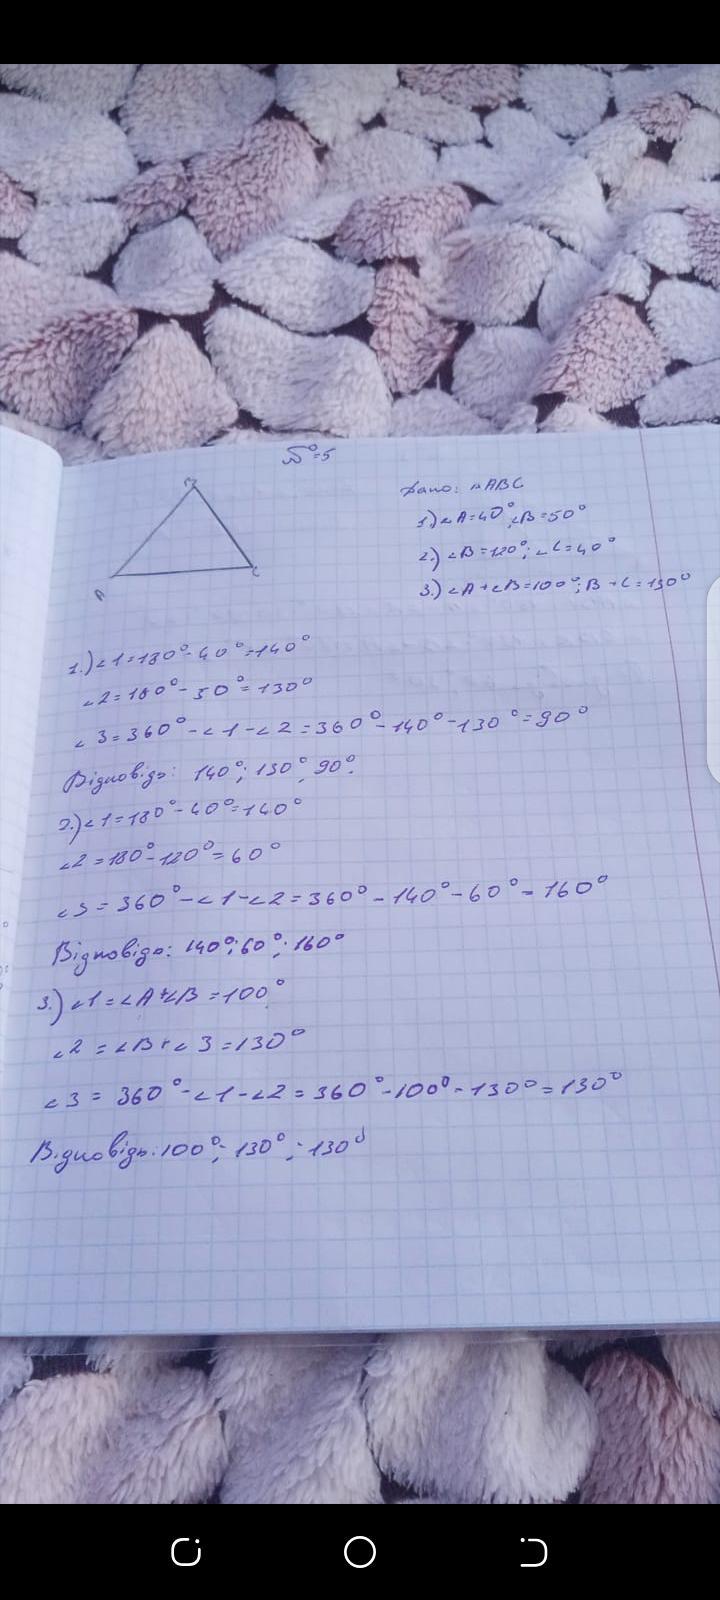 №5
B
A
C
Дано: △ABC
1.) ∠A=40°; ∠B=50°
2.) ∠B=120°; ∠C=40°
3.) ∠A+∠B=100°; B+C=130°
1.) ∠1=180°-40°=140°
∠2=180°-50°=130°
∠3=360°-∠1-∠2=360°-140°-130°=90°
Відповідь: 140°; 130°, 90°.
2.) ∠1=180°-40°=140°
∠2=180°-120°=60°
∠3=360°-∠1-∠2=360°-140°-60°=160°
Відповідь: 140°; 60°; 160°
3.) ∠1=∠A+∠B=100°
∠2=∠B+∠3=130°
∠3=360°-∠1-∠2=360°-100°-130°=130°
Відповідь: 100°; 130°; 130°